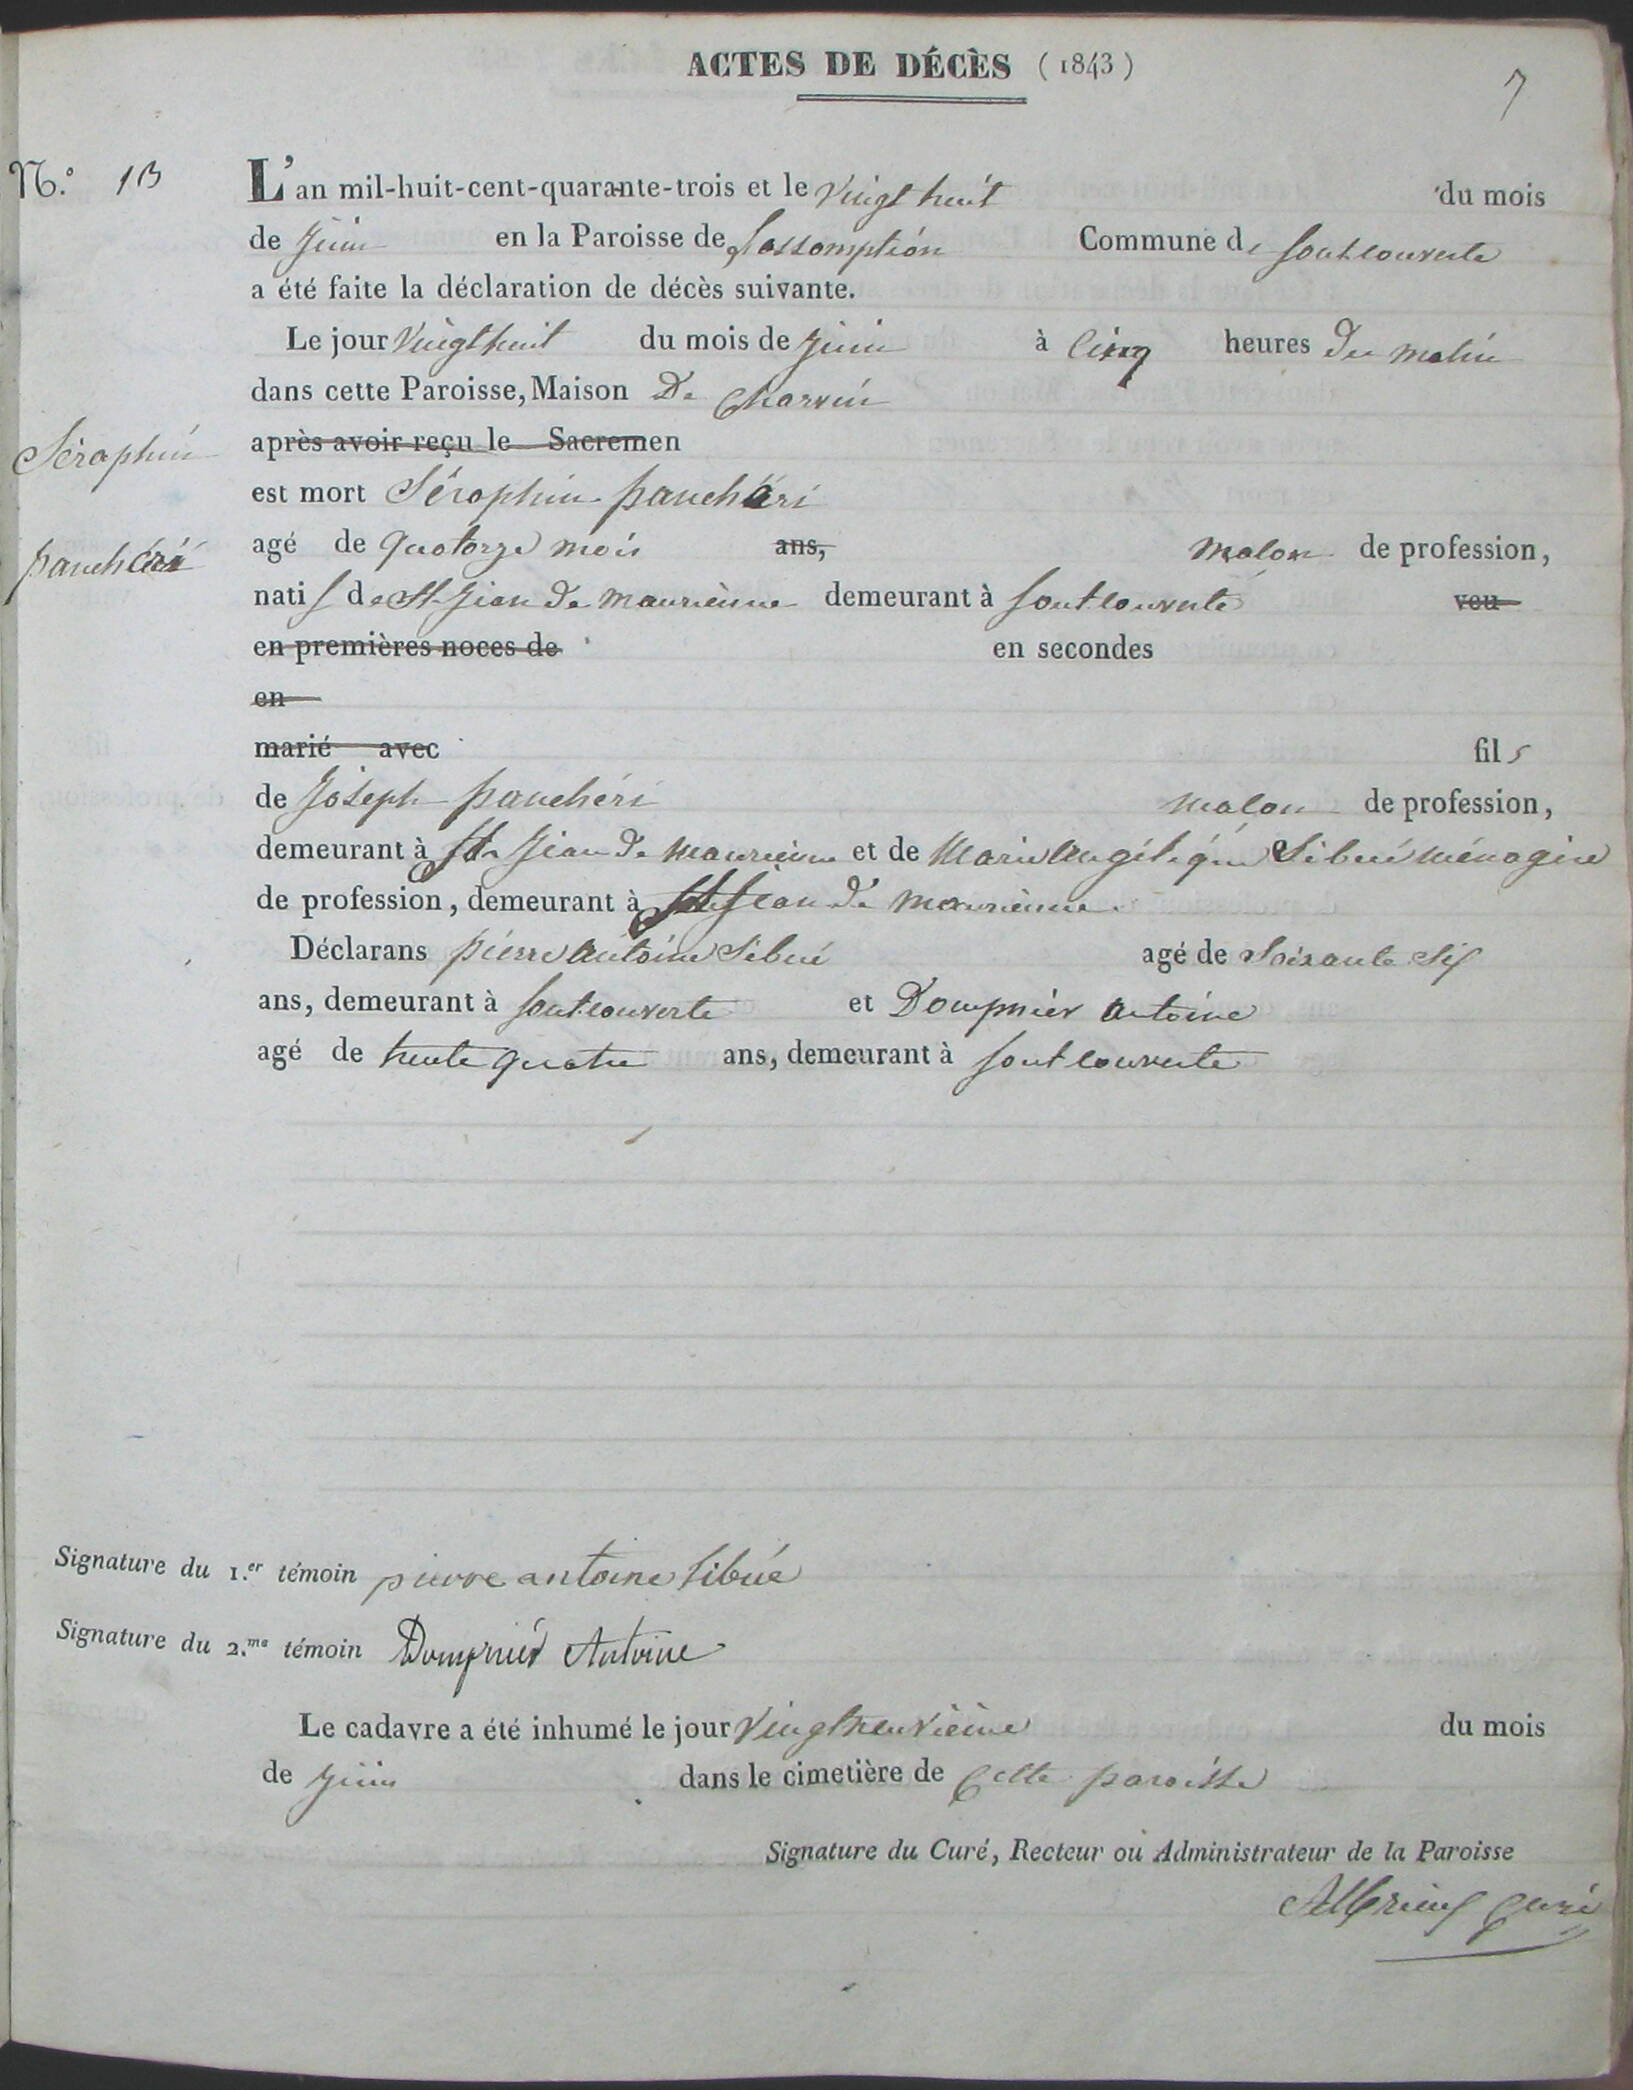 ACTES DE DÉCÈS (1843)
7
N.° 13
L'an mil-huit-cent-quarante-trois et le vingt huit du mois
de juin en la Paroisse de l'assomption Commune de fontcouverte
a été faite la déclaration de décès suivante.
Le jour vingt huit du mois de juin à cinq heures du matin
dans cette Paroisse, Maison De Charvin
Séraphin
après avoir reçu le Sacremen
est mort Séraphin panchéri
panchéri
agé de quatorze mois ans, malon de profession,
natif de St jean de maurienne demeurant à fontcouverte veu
en premières noces de en secondes
en
marié avec fils
de joseph panchéri malon de profession,
demeurant à St jean de maurienne et de Marie Angélique Sibué ménagère
de profession, demeurant à St jean de maurienne
Déclarans pierre antoine Sibué agé de Soixante Six
ans, demeurant à fontcouverte et Dompnier antoine
agé de trente quatre ans, demeurant à fontcouverte
Signature du 1.er témoin pierre antoine sibué
Signature du 2.me témoin Dompnier Antoine
Le cadavre a été inhumé le jour vingt neuvieme du mois
de juin dans le cimetière de Cette paroisse
Signature du Curé, Recteur ou Administrateur de la Paroisse
curé